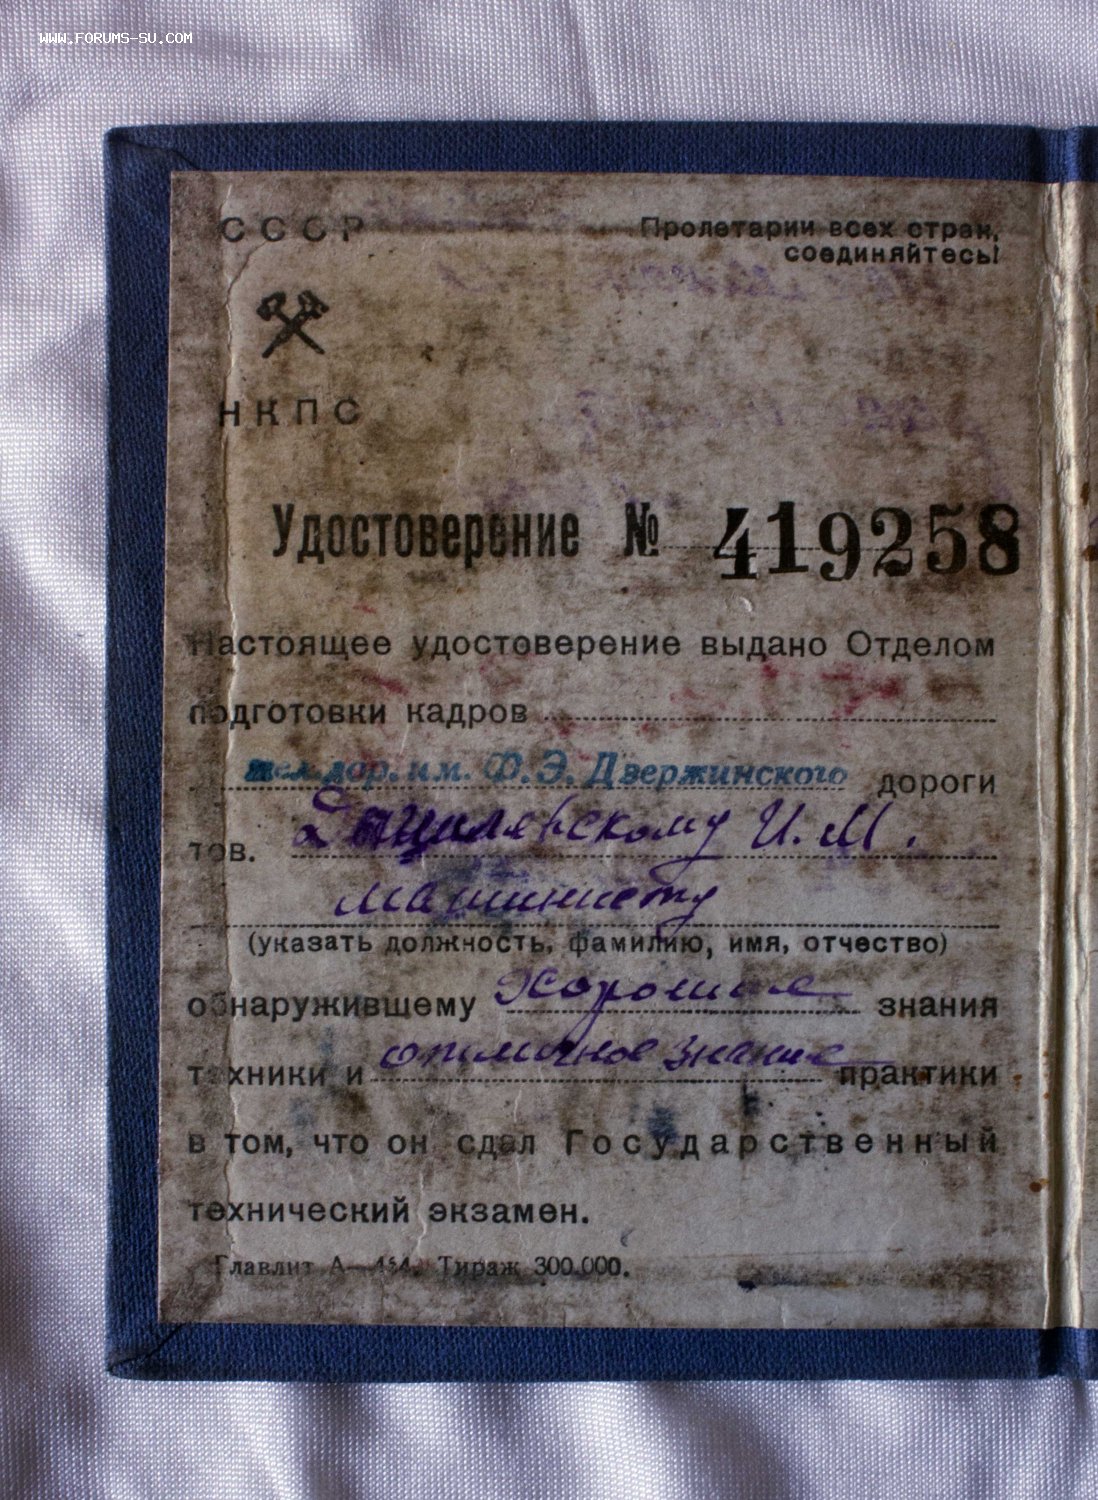 WWW.FORUMS-SU.COM
СССР
Пролетарии всех стран,
соединяйтесь!
НКПС
Удостоверение № 419258
Настоящее удостоверение выдано Отделом
подготовки кадров
жел.дор. им. Ф.Э. Дзержинского дороги
тов. И. М.
машинисту
(указать должность, фамилию, имя, отчество)
обнаружившему хорошие знания
техники и отличное знание практики
в том, что он сдал Государственный
технический экзамен.
Главлит А— Тираж 300.000.